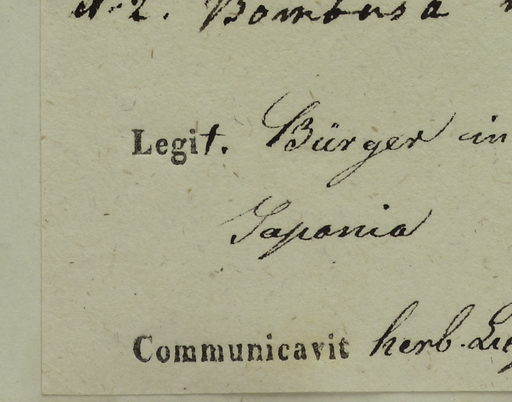 N 2. Bambusa
Legit. Bürger in
Japonia
Communicavit herb.